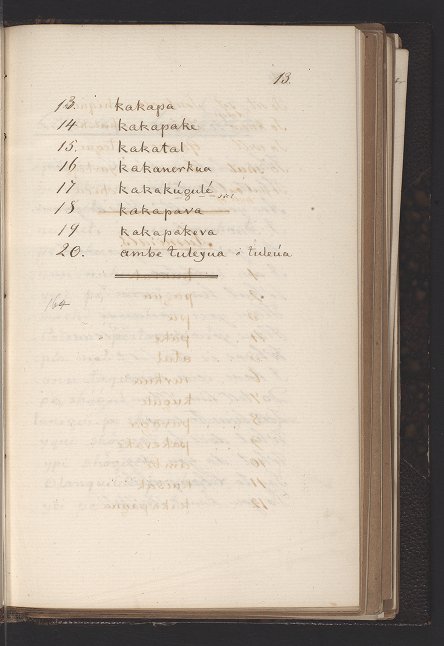 13.
13. kakapa
14 kakapake
15. kakatal
16 kakanerkua
17 kakakúgulé
18 kakapava
19 kakapakeva
20. ambe tulegua ó tuleúa
164